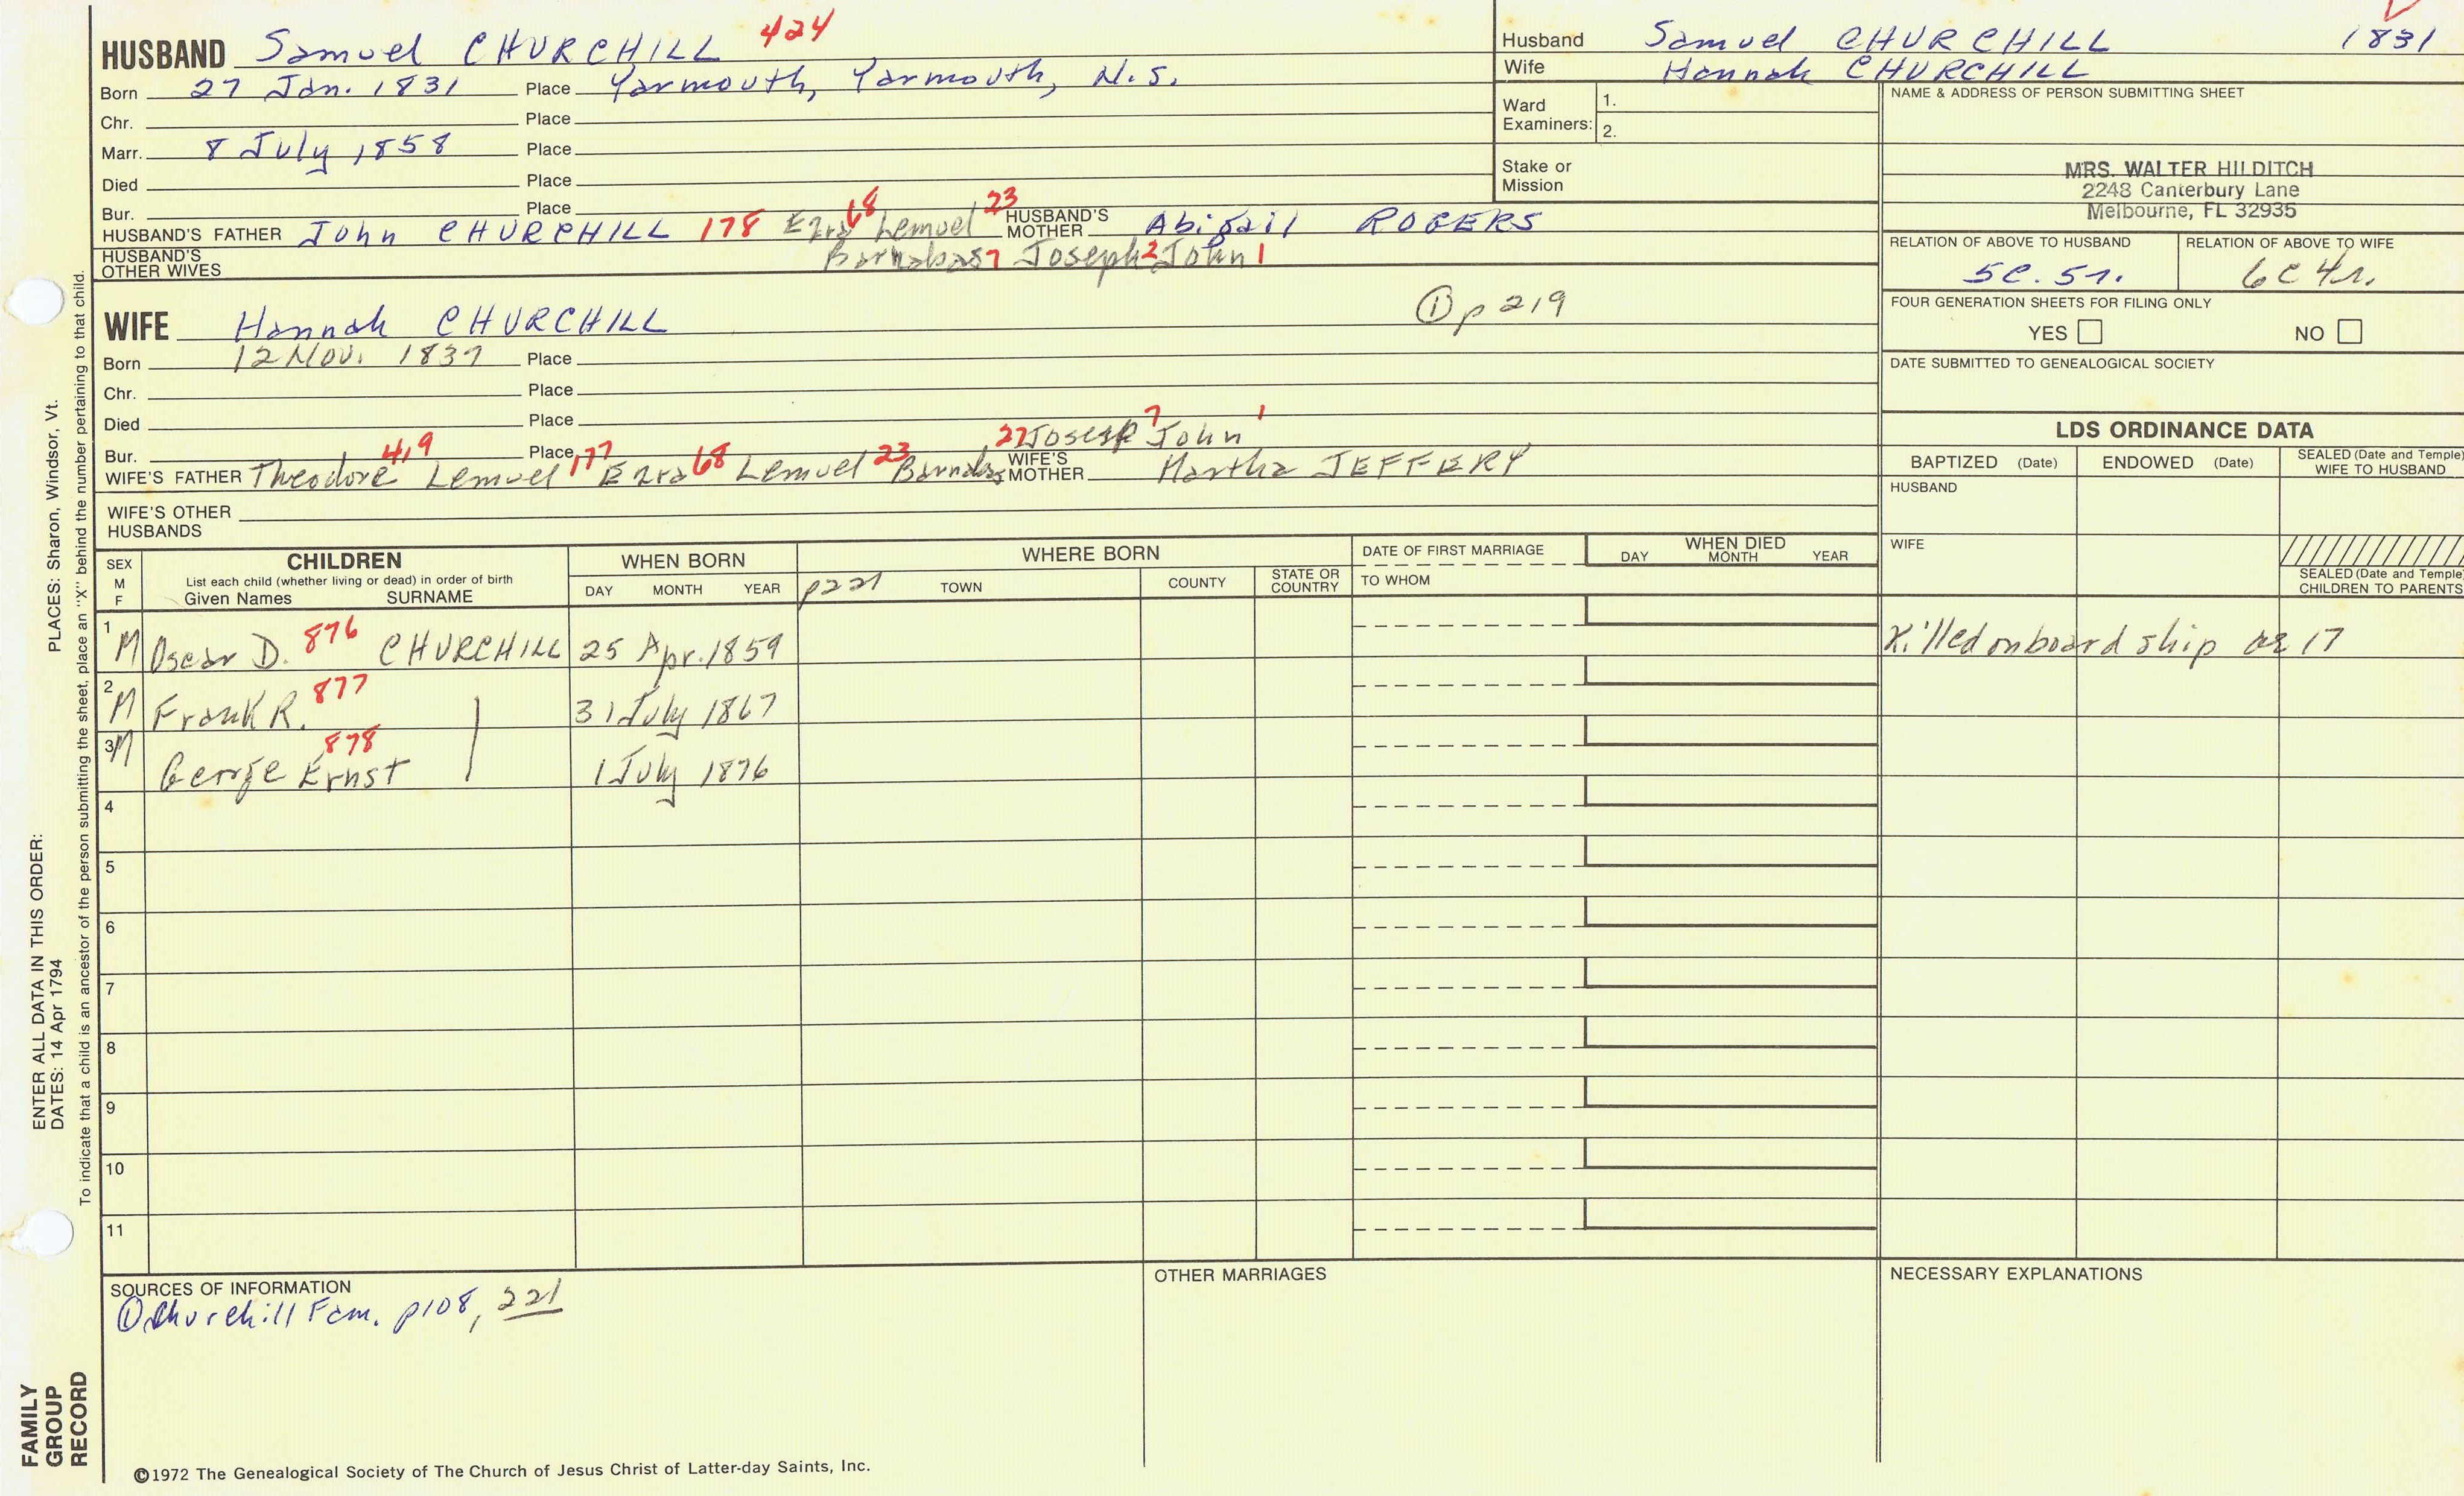 HUSBAND Samuel CHURCHILL 424
Born 27 Jan. 1831 Place Yarmouth, Yarmouth, N.S.
Chr. Place
Marr. 8 July 1858 Place
Died Place
Bur. Place
HUSBAND'S FATHER John CHURCHILL 178 Ezra 68 Lemuel 23 HUSBAND'S MOTHER Abigail ROGERS
Barnabas 7 Joseph 2 John 1
HUSBAND'S OTHER WIVES
Husband Samuel CHURCHILL 1831
Wife Hannah CHURCHILL
Ward Examiners: 1.
2.
Stake or Mission
NAME & ADDRESS OF PERSON SUBMITTING SHEET
MRS. WALTER HILDITCH
2248 Canterbury Lane
Melbourne, FL 32935
RELATION OF ABOVE TO HUSBAND RELATION OF ABOVE TO WIFE
5C. 5r. 6C 4r.
FOUR GENERATION SHEETS FOR FILING ONLY
YES NO
DATE SUBMITTED TO GENEALOGICAL SOCIETY
WIFE Hannah CHURCHILL ① p 219
Born 12 Nov. 1837 Place
Chr. Place
Died Place
27 Joseph 7 John 1
Bur. Place
WIFE'S FATHER Theodore 419 Lemuel 177 Ezra 68 Lemuel 23 Barnabas WIFE'S MOTHER Martha JEFFERY
WIFE'S OTHER HUSBANDS
LDS ORDINANCE DATA
BAPTIZED (Date) ENDOWED (Date) SEALED (Date and Temple) WIFE TO HUSBAND
HUSBAND
WIFE
SEALED (Date and Temple) CHILDREN TO PARENTS
SEX M F
CHILDREN
List each child (whether living or dead) in order of birth
Given Names SURNAME
WHEN BORN
DAY MONTH YEAR
WHERE BORN
p221 TOWN COUNTY STATE OR COUNTRY
DATE OF FIRST MARRIAGE
TO WHOM
WHEN DIED
DAY MONTH YEAR
1 M Oscar D. 876 CHURCHILL 25 Apr. 1859 Killed onboard ship ae 17
2 M Frank R. 877 31 July 1867
3 M George Ernst 878 1 July 1876
4
5
6
7
8
9
10
11
SOURCES OF INFORMATION
① Churchill Fam. p108, 221
OTHER MARRIAGES
NECESSARY EXPLANATIONS
©1972 The Genealogical Society of The Church of Jesus Christ of Latter-day Saints, Inc.
FAMILY GROUP RECORD
ENTER ALL DATA IN THIS ORDER:
DATES: 14 Apr 1794
PLACES: Sharon, Windsor, Vt.
To indicate that a child is an ancestor of the person submitting the sheet, place an "X" behind the number pertaining to that child.